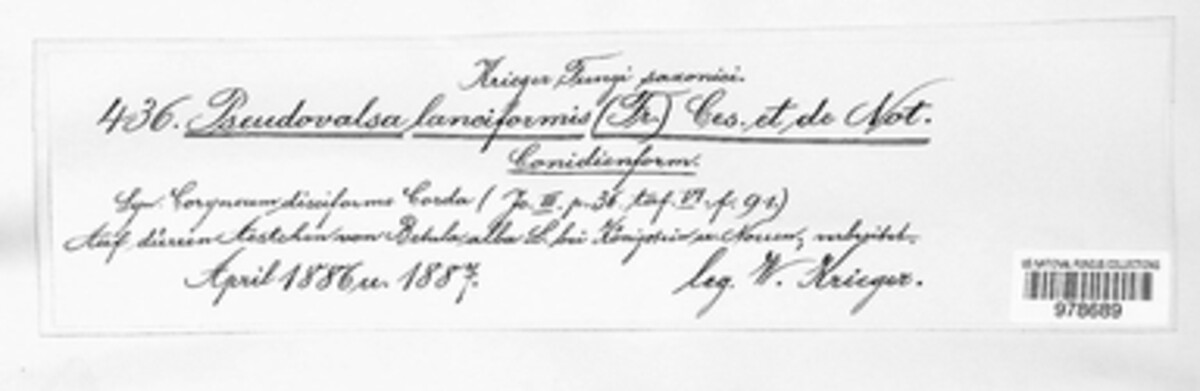 Krieger Fungi saxonici.
436. Pseudovalsa lanciformis (Fr.) Ces. et de Not.
Conidienform.
Syn. Coryneum disciforme Corda ( Jc. III. p. 36. taf. VI. f. 91.)
Auf dürren Aestchen von Betula alba L. bei Königstein u. Nossen,
April 1886 u. 1887.
leg. W. Krieger.
US NATIONAL FUNGUS COLLECTIONS
978689